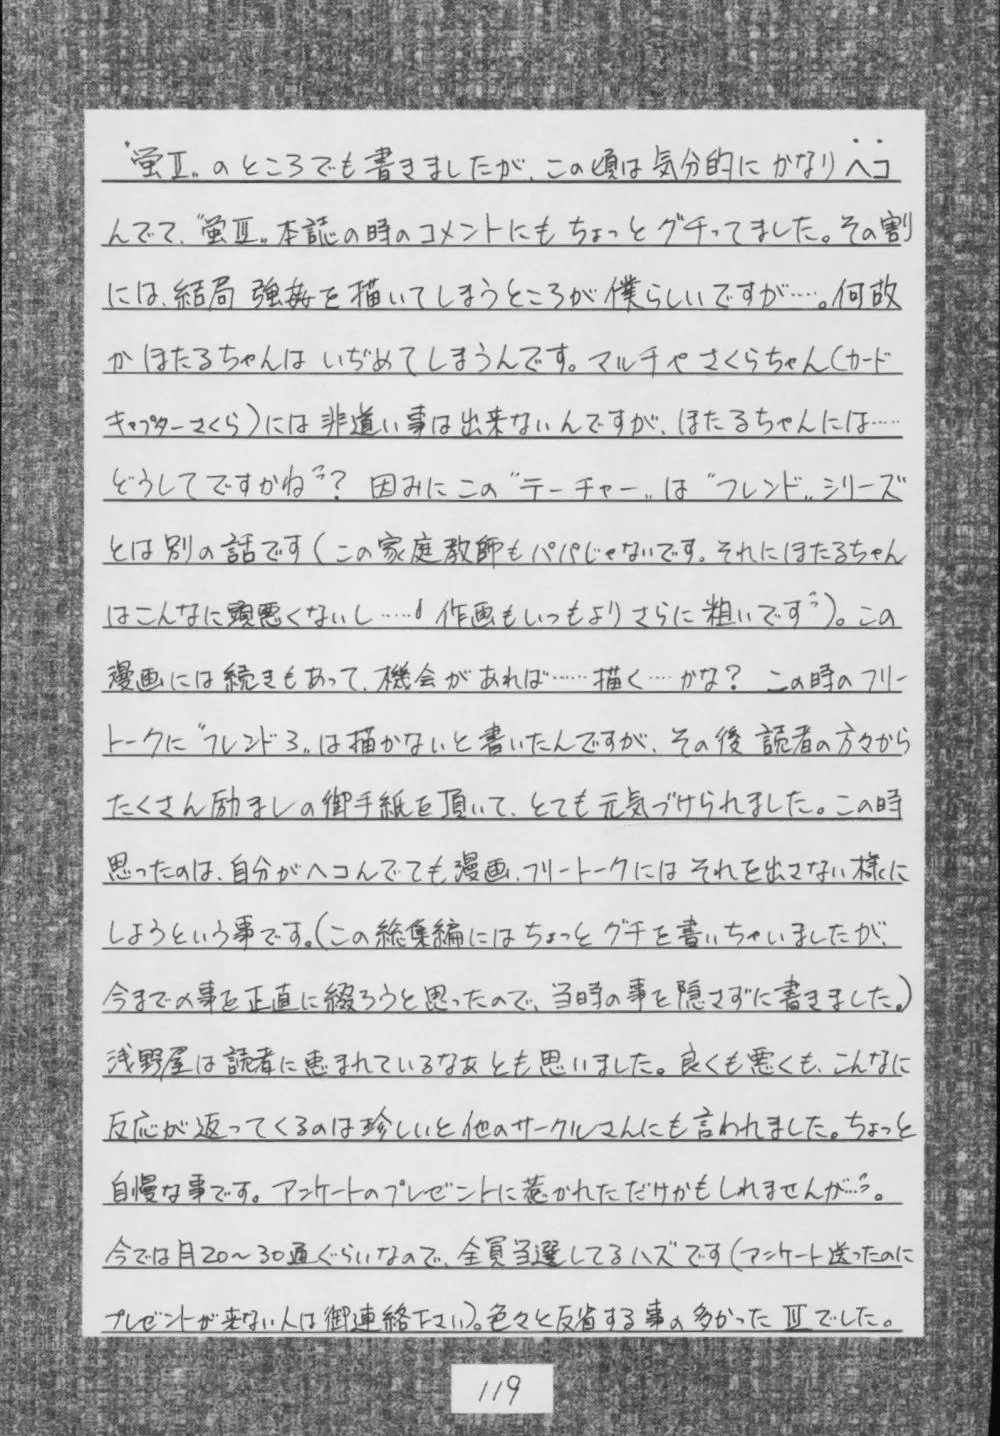 “蛍Ⅱ”のところでも書きましたが、この頃は気分的にかなりヘコ
んでて、“蛍Ⅲ”本誌の時のコメントにもちょっとグチってました。その割
には、結局 強姦を描いてしまうところが僕らしいですが……。何故
かほたるちゃんは いぢめてしまうんです。マルチやさくらちゃん(カード
キャプターさくら)には非道い事は出来ないんですが、ほたるちゃんには……
どうしてですかね? 因みにこの“テーチャー”は“フレンド”シリーズ
とは別の話です(この家庭教師もパパじゃないです。それにほたるちゃん
はこんなに頭悪くないし……! 作画もいつもよりさらに粗いです)。この
漫画には続きもあって、機会があれば……描く…かな? この時のフリー
トークに“フレンド3”は描かないと書いたんですが、その後 読者の方々から
たくさん励ましの御手紙を頂いて、とても元気づけられました。この時
思ったのは、自分がヘコんでても漫画、フリートークにはそれを出さない様に
しようという事です。(この総集編にはちょっとグチを書いちゃいましたが、
今までの事を正直に綴ろうと思ったので、当時の事を隠さずに書きました。)
浅野屋は読者に恵まれているなぁとも思いました。良くも悪くも、こんなに
反応が返ってくるのは珍しいと他のサークルさんにも言われました。ちょっと
自慢な事です。アンケートのプレゼントに惹かれただけかもしれませんが…。
今では月20〜30通ぐらいなので、全員当選してるハズです(アンケート送ったのに
プレゼントが来ない人は御連絡下さい)。色々と反省する事の多かった Ⅲでした。
119